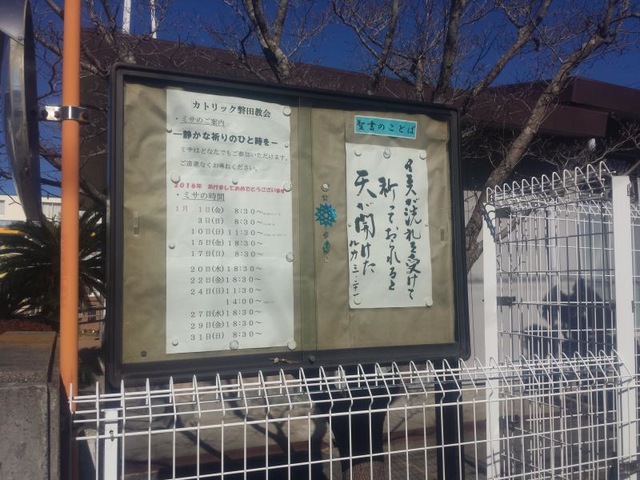 カトリック磐田教会
・ミサのご案内
―静かな祈りのひと時を―
ミサはどなたでもご参加いただけます。
ご遠慮なくお尋ねください。
2016年 あけましておめでとうございます
・ミサの時間
1月 1日(金) 8:30～
3日(日) 8:30～
10日(日)11:30～
15日(金)18:30～
17日(日) 8:30～
20日(水)18:30～
22日(金)18:30～
24日(日)11:30～
14:00～
27日(水)18:30～
29日(金)18:30～
31日(日) 8:30～
聖書のことば
イエスが洗礼を受けて
祈っておられると
天が開けた
ルカ三・二十一